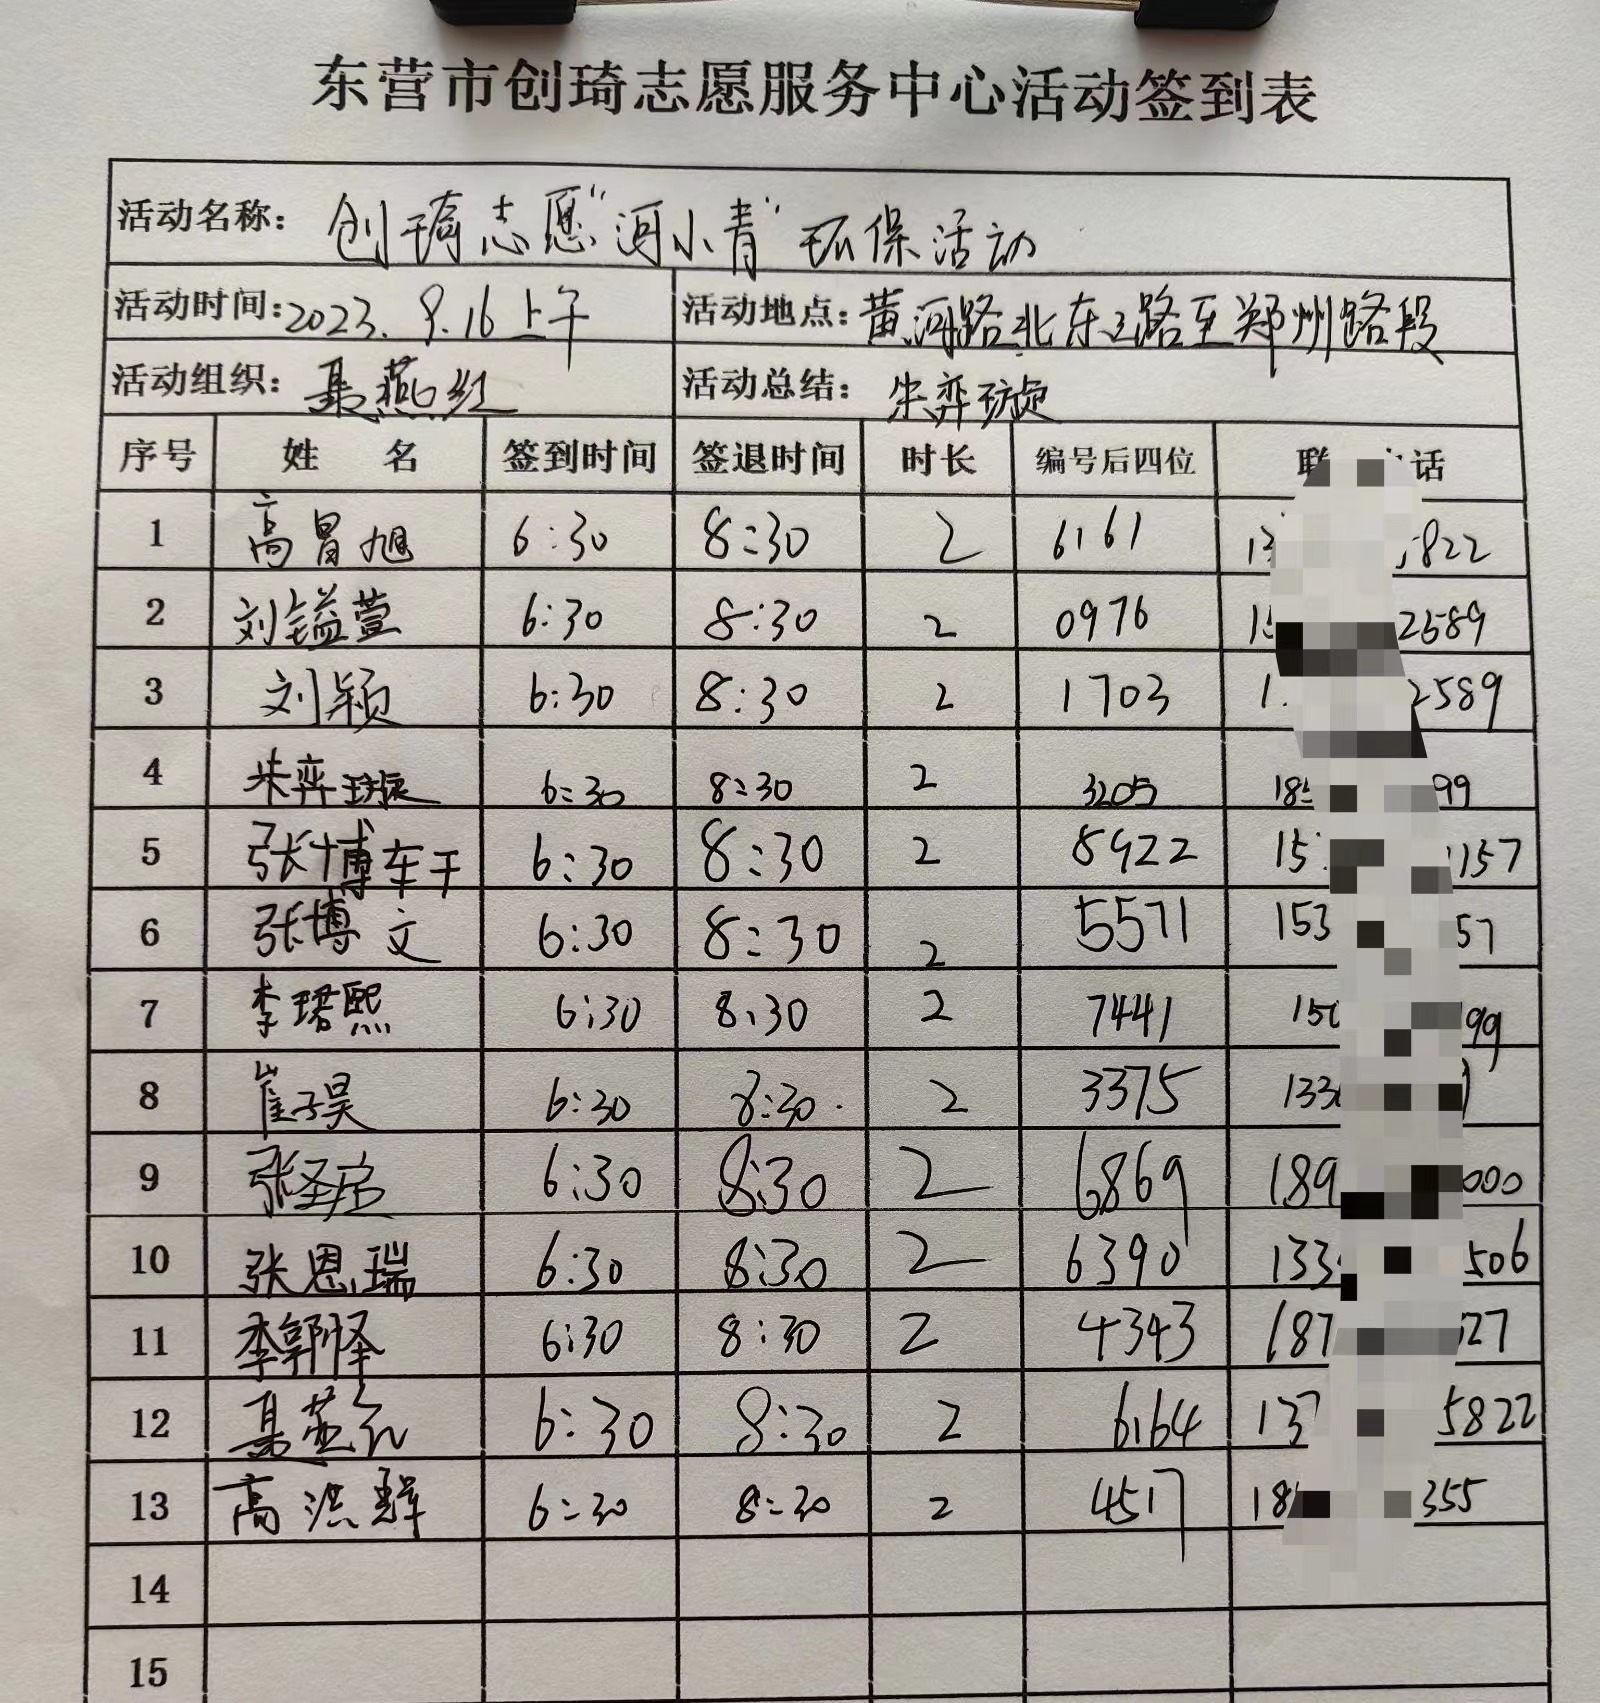 东营市创琦志愿服务中心活动签到表
活动名称: 创琦志愿“河小青”环保活动
活动时间: 2023.9.16上午 活动地点: 黄河路北东三路至郑州路段
活动组织: 聂燕红 活动总结: 朱弈璇
序号 姓 名 签到时间 签退时间 时长 编号后四位 联 话
1 高冒旭 6:30 8:30 2 6161 13 5822
2 刘镒萱 6:30 8:30 2 0976 15 2589
3 刘颖 6:30 8:30 2 1703 1 2589
4 朱弈璇 6:30 8:30 2 3205 185 99
5 张博车干 6:30 8:30 2 8922 15 1157
6 张博文 6:30 8:30 2 5571 153 57
7 李珺熙 6:30 8:30 2 7441 150 99
8 崔子昊 6:30 8:30 2 3375 133
9 张圣启 6:30 8:30 2 6869 189 000
10 张恩瑞 6:30 8:30 2 6390 133 506
11 李郭怿 6:30 8:30 2 4343 187 527
12 聂燕红 6:30 8:30 2 6164 137 5822
13 高洪辉 6:30 8:30 2 4517 18 355
14
15